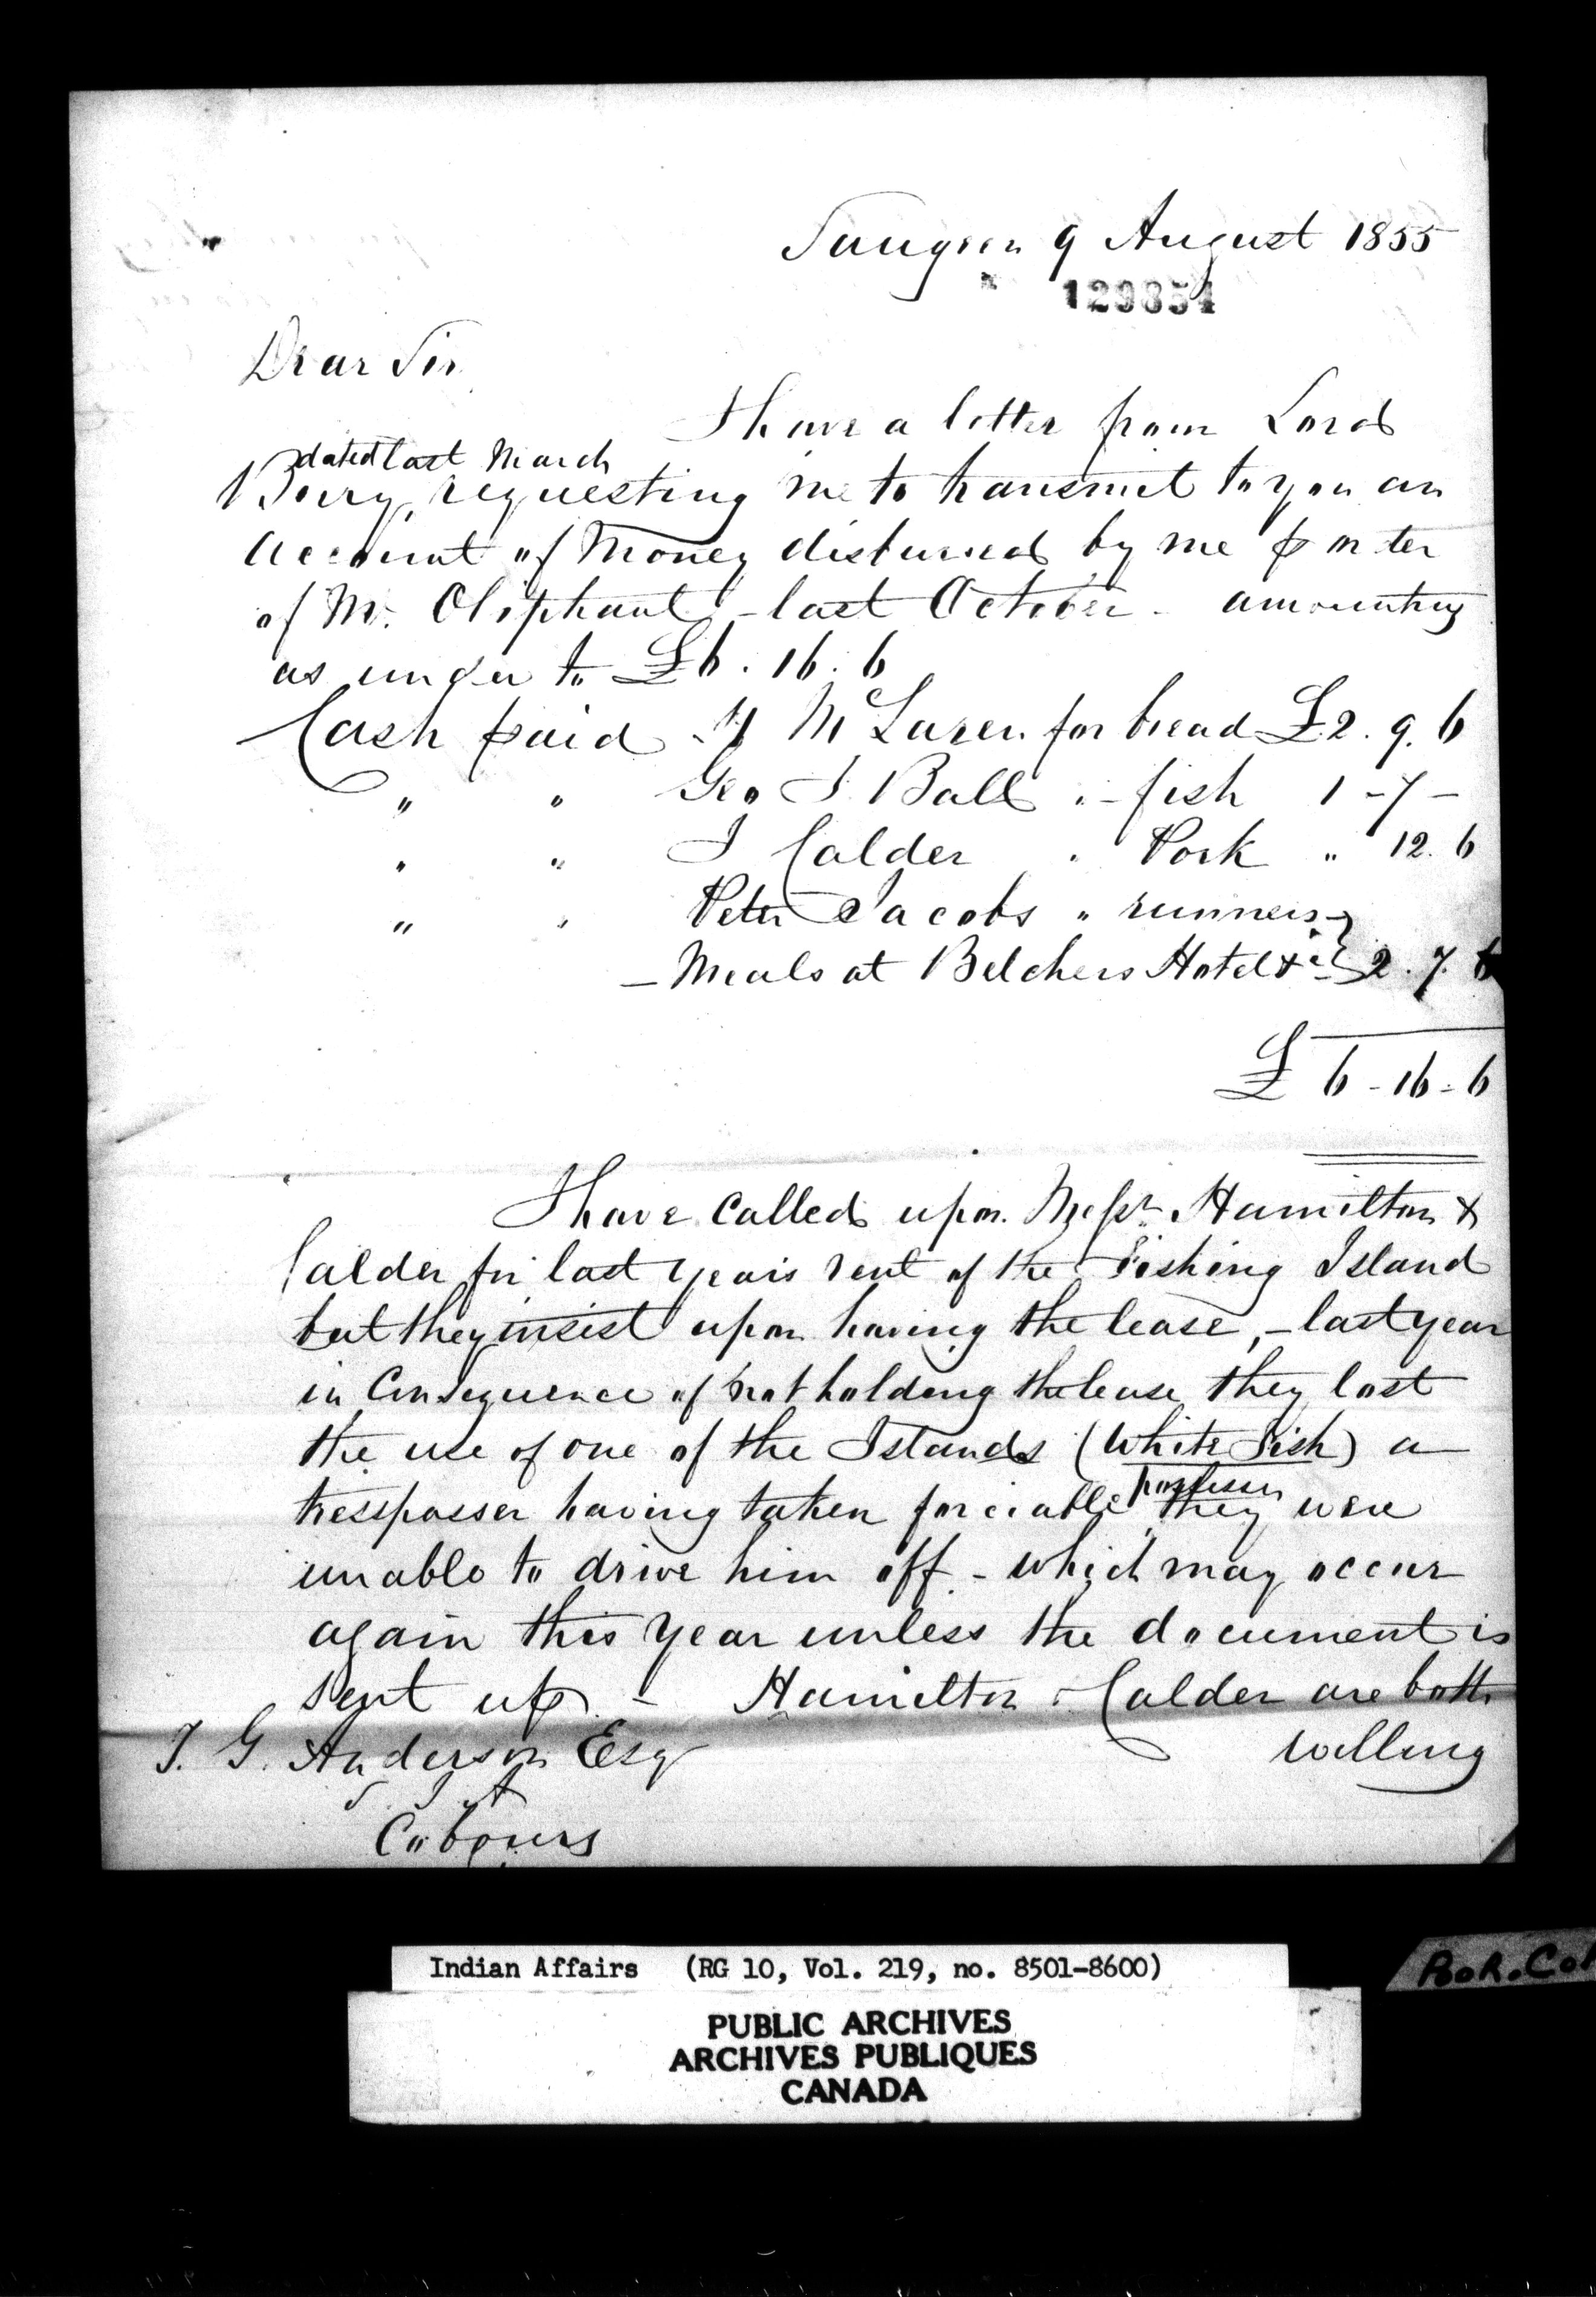 Saugeen 9 August 1855
129854
Dear Sir
I have a letter from Lord
dated last March
Bury, requesting me to transmit to you an
Account of Money disbursed by me p order
of Mr. Oliphant - last October - amounting
as under to £6.16.6
Cash paid McLaren for bread £2.9.6
" " Geo J. Ball " - fish 1-7-
" " J Calder " Pork " 12.6
" " Peter Jacobs " runners }
- Meals at Belchers Hotel &c - } 2.7.6
£ 6-16-6
I have called upon Messrs Hamilton &
Calder for last years rent of the Fishing Island
but they insist upon having the lease, - last year
in Consequence of not holding the lease they lost
the use of one of the Islands (White Fish) a
tresspasser having taken forciable possession they were
unable to drive him off - which may occur
again this year unless the document is
sent up - Hamilton & Calder are both
willing
T. G. Anderson Esq
S. I. A
Cobourg
Indian Affairs (RG 10, Vol. 219, no. 8501-8600)
PUBLIC ARCHIVES
ARCHIVES PUBLIQUES
CANADA